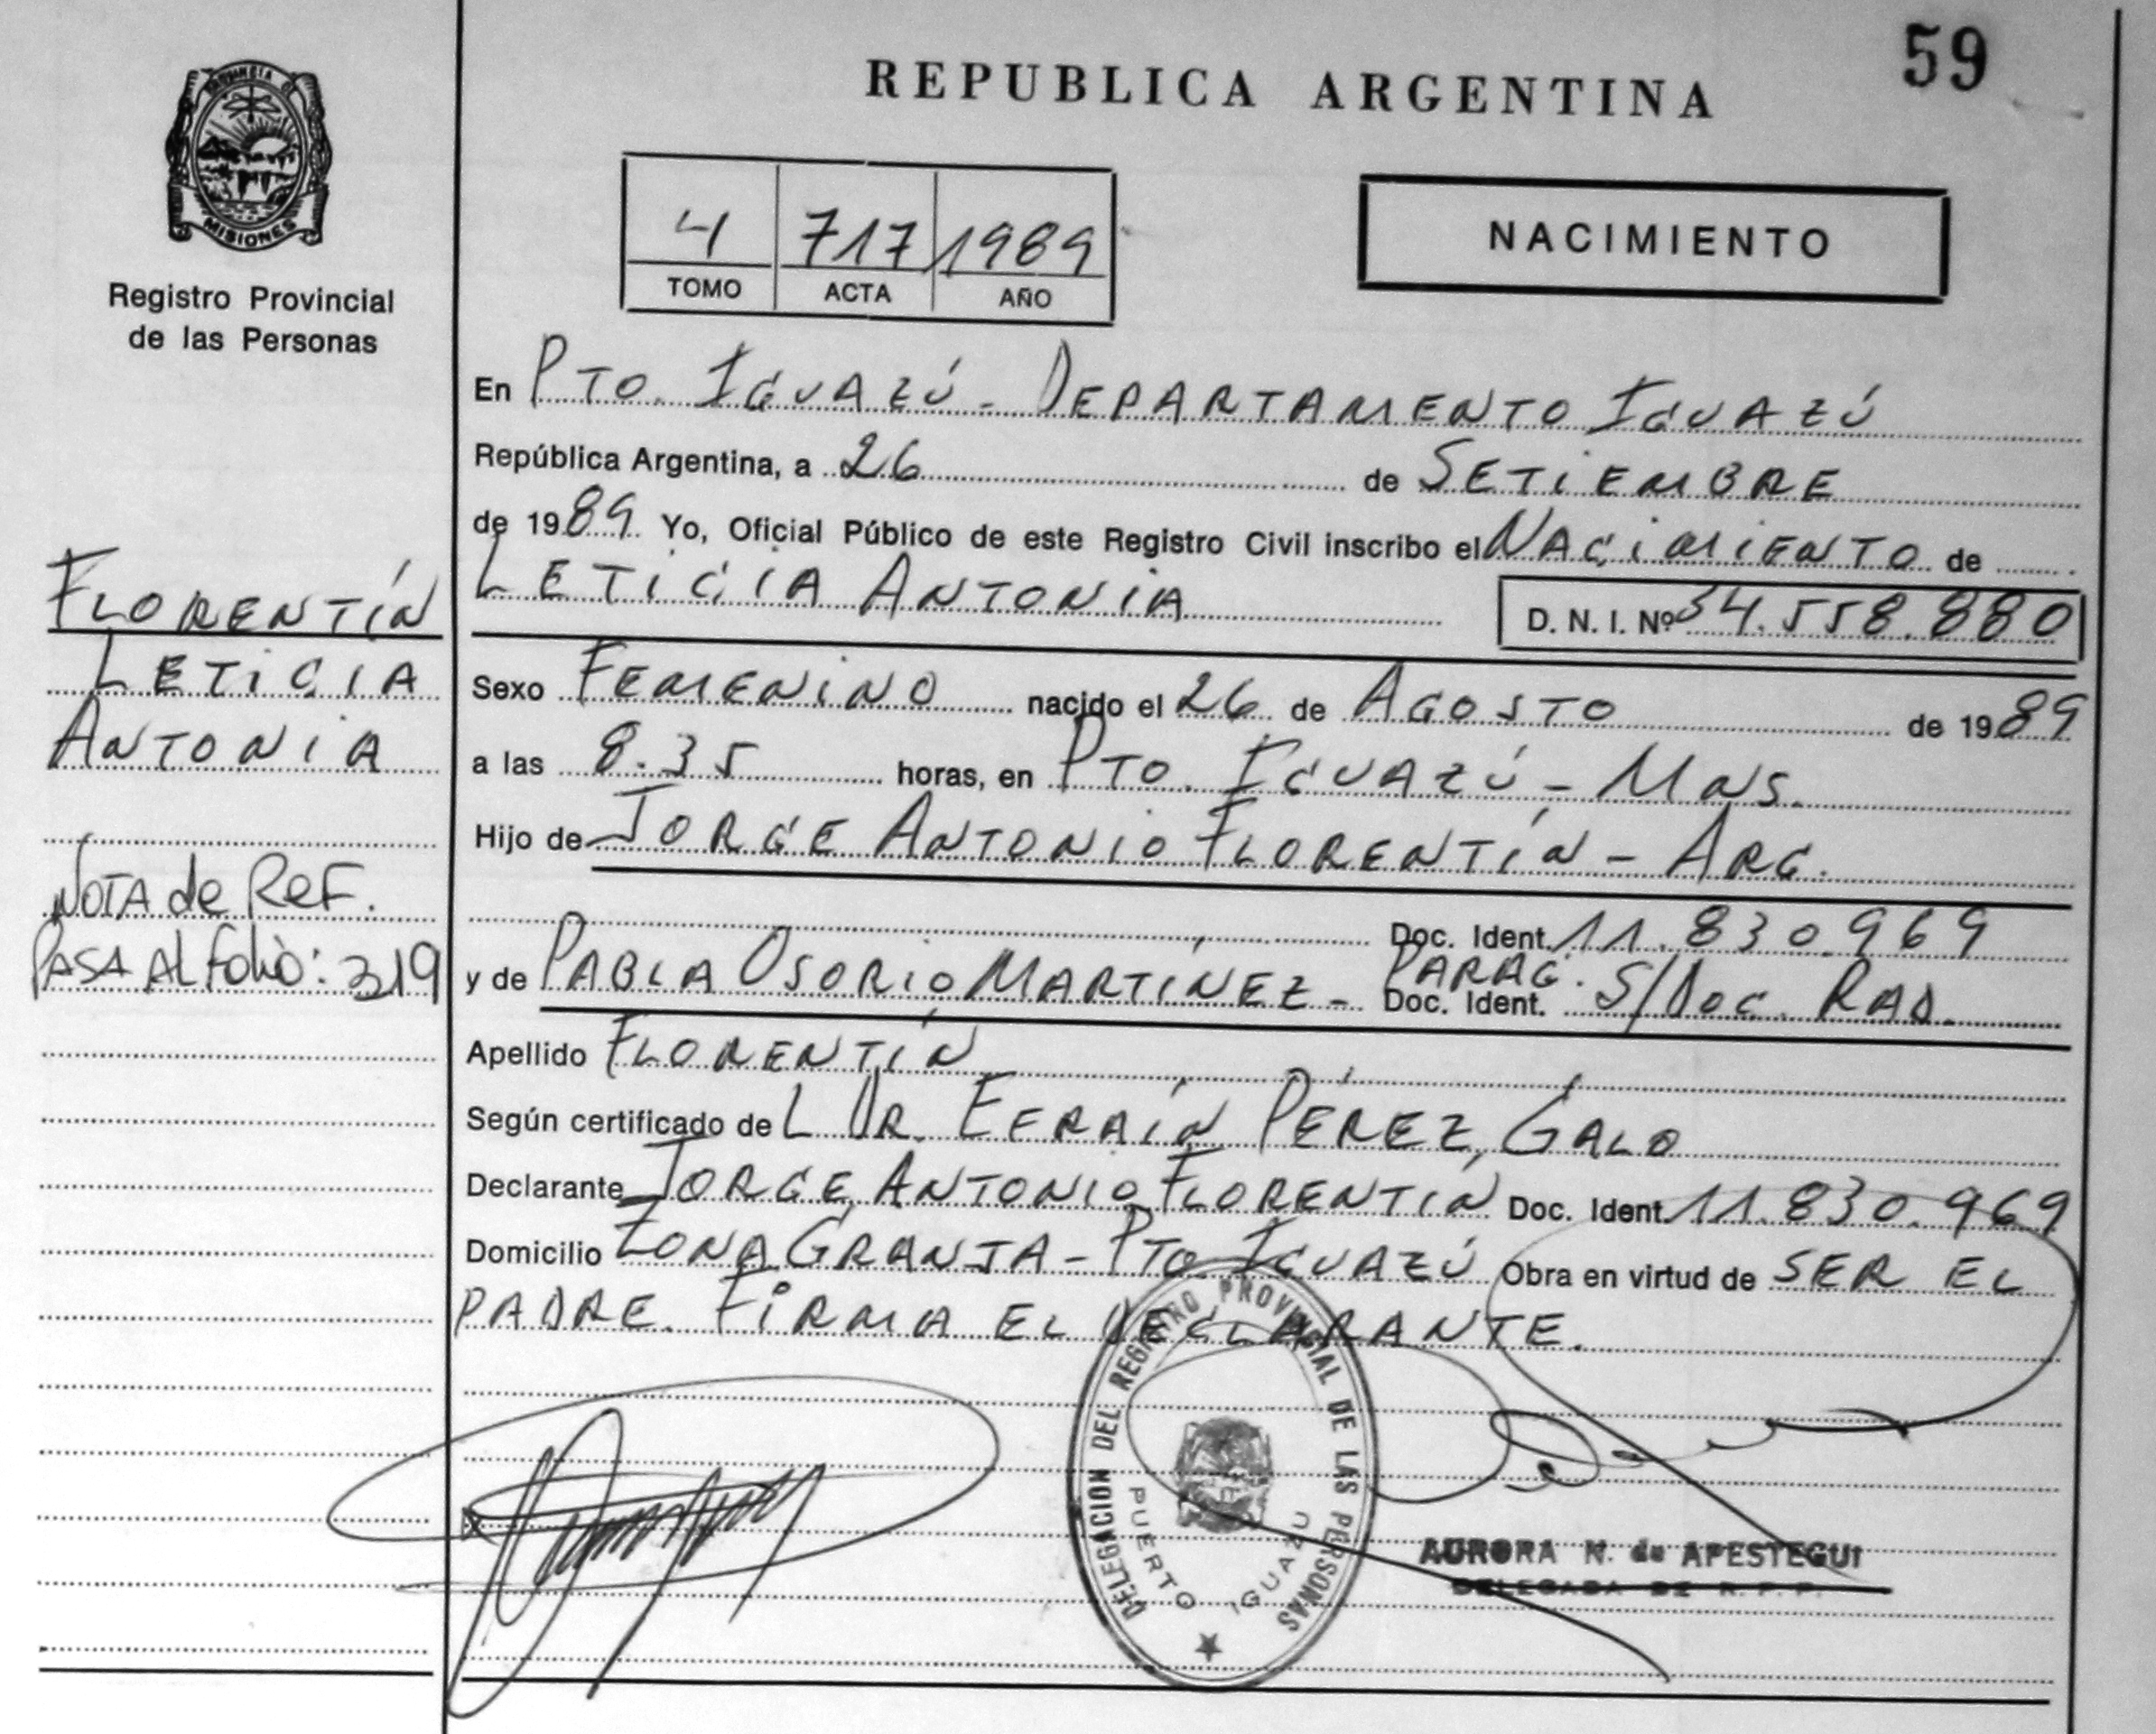 59
REPUBLICA ARGENTINA
PROVINCIA D
MISIONES
Registro Provincial
de las Personas
4 717 1989
TOMO ACTA AÑO
NACIMIENTO
En PTO. IGUAZÚ - DEPARTAMENTO IGUAZÚ
República Argentina, a 26 de SETIEMBRE
de 1989 Yo, Oficial Público de este Registro Civil inscribo el NACIMIENTO de
LETICIA ANTONIA D. N. I. Nº 34.558.880
Sexo FEMENINO nacido el 26 de AGOSTO de 1989
a las 8.35 horas, en PTO. IGUAZÚ - MNS.
Hijo de JORGE ANTONIO FLORENTÍN - ARG.
Doc. Ident. 11.830.969
y de PABLA OSORIO MARTÍNEZ - PARAG. Doc. Ident. S/DOC. RAD.
Apellido FLORENTÍN
Según certificado de L DR. EFRAÍN PÉREZ, GALO
Declarante JORGE ANTONIO FLORENTÍN Doc. Ident. 11.830.969
Domicilio ZONA GRANJA - PTO. IGUAZÚ Obra en virtud de SER EL
PADRE. FIRMA EL DECLARANTE.
FLORENTÍN
LETICIA
ANTONIA
NOTA de REF.
PASA AL Folio: 319
DELEGACION DEL REGISTRO PROVINCIAL DE LAS PERSONAS
PUERTO IGUAZU
AURORA N. de APESTEGUI
DELEGADA DE R. P. P.